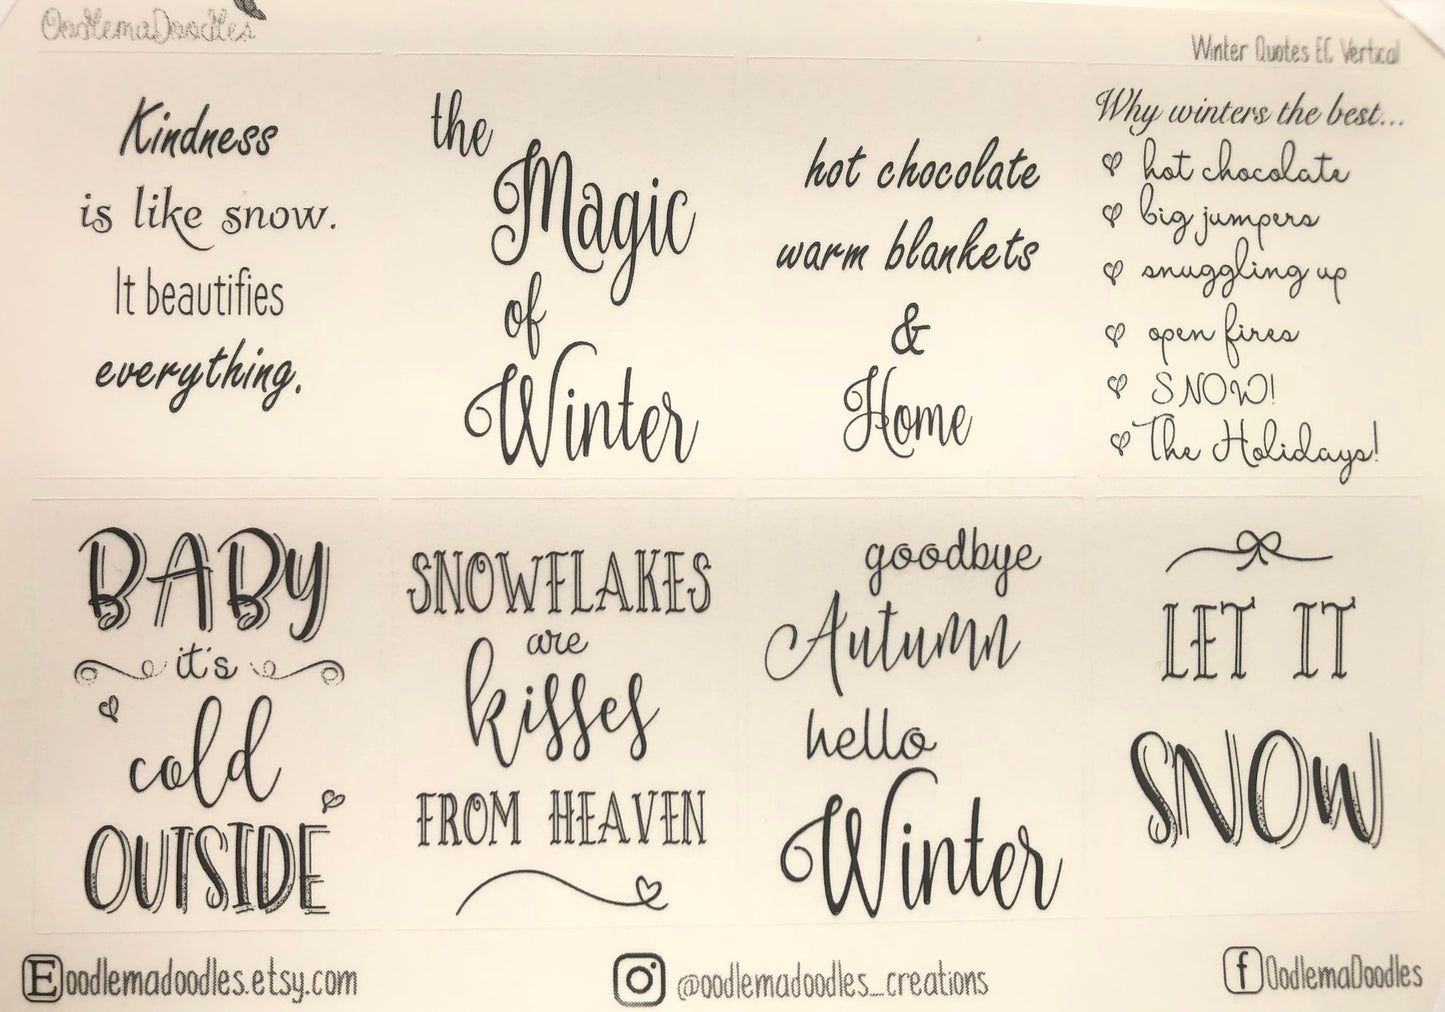 OodlemaDoodles
Winter Quotes EC Vertical
Kindness
is like snow.
It beautifies
everything.
the
Magic
of
Winter
hot chocolate
warm blankets
&
Home
Why winters the best...
hot chocolate
big jumpers
snuggling up
open fires
SNOW!
The Holidays!
BABY
it's
cold
OUTSIDE
SNOWFLAKES
are
kisses
FROM HEAVEN
goodbye
Autumn
hello
Winter
LET IT
SNOW
E oodlemadoodles.etsy.com
@oodlemadoodles_creations
f OodlemaDoodles